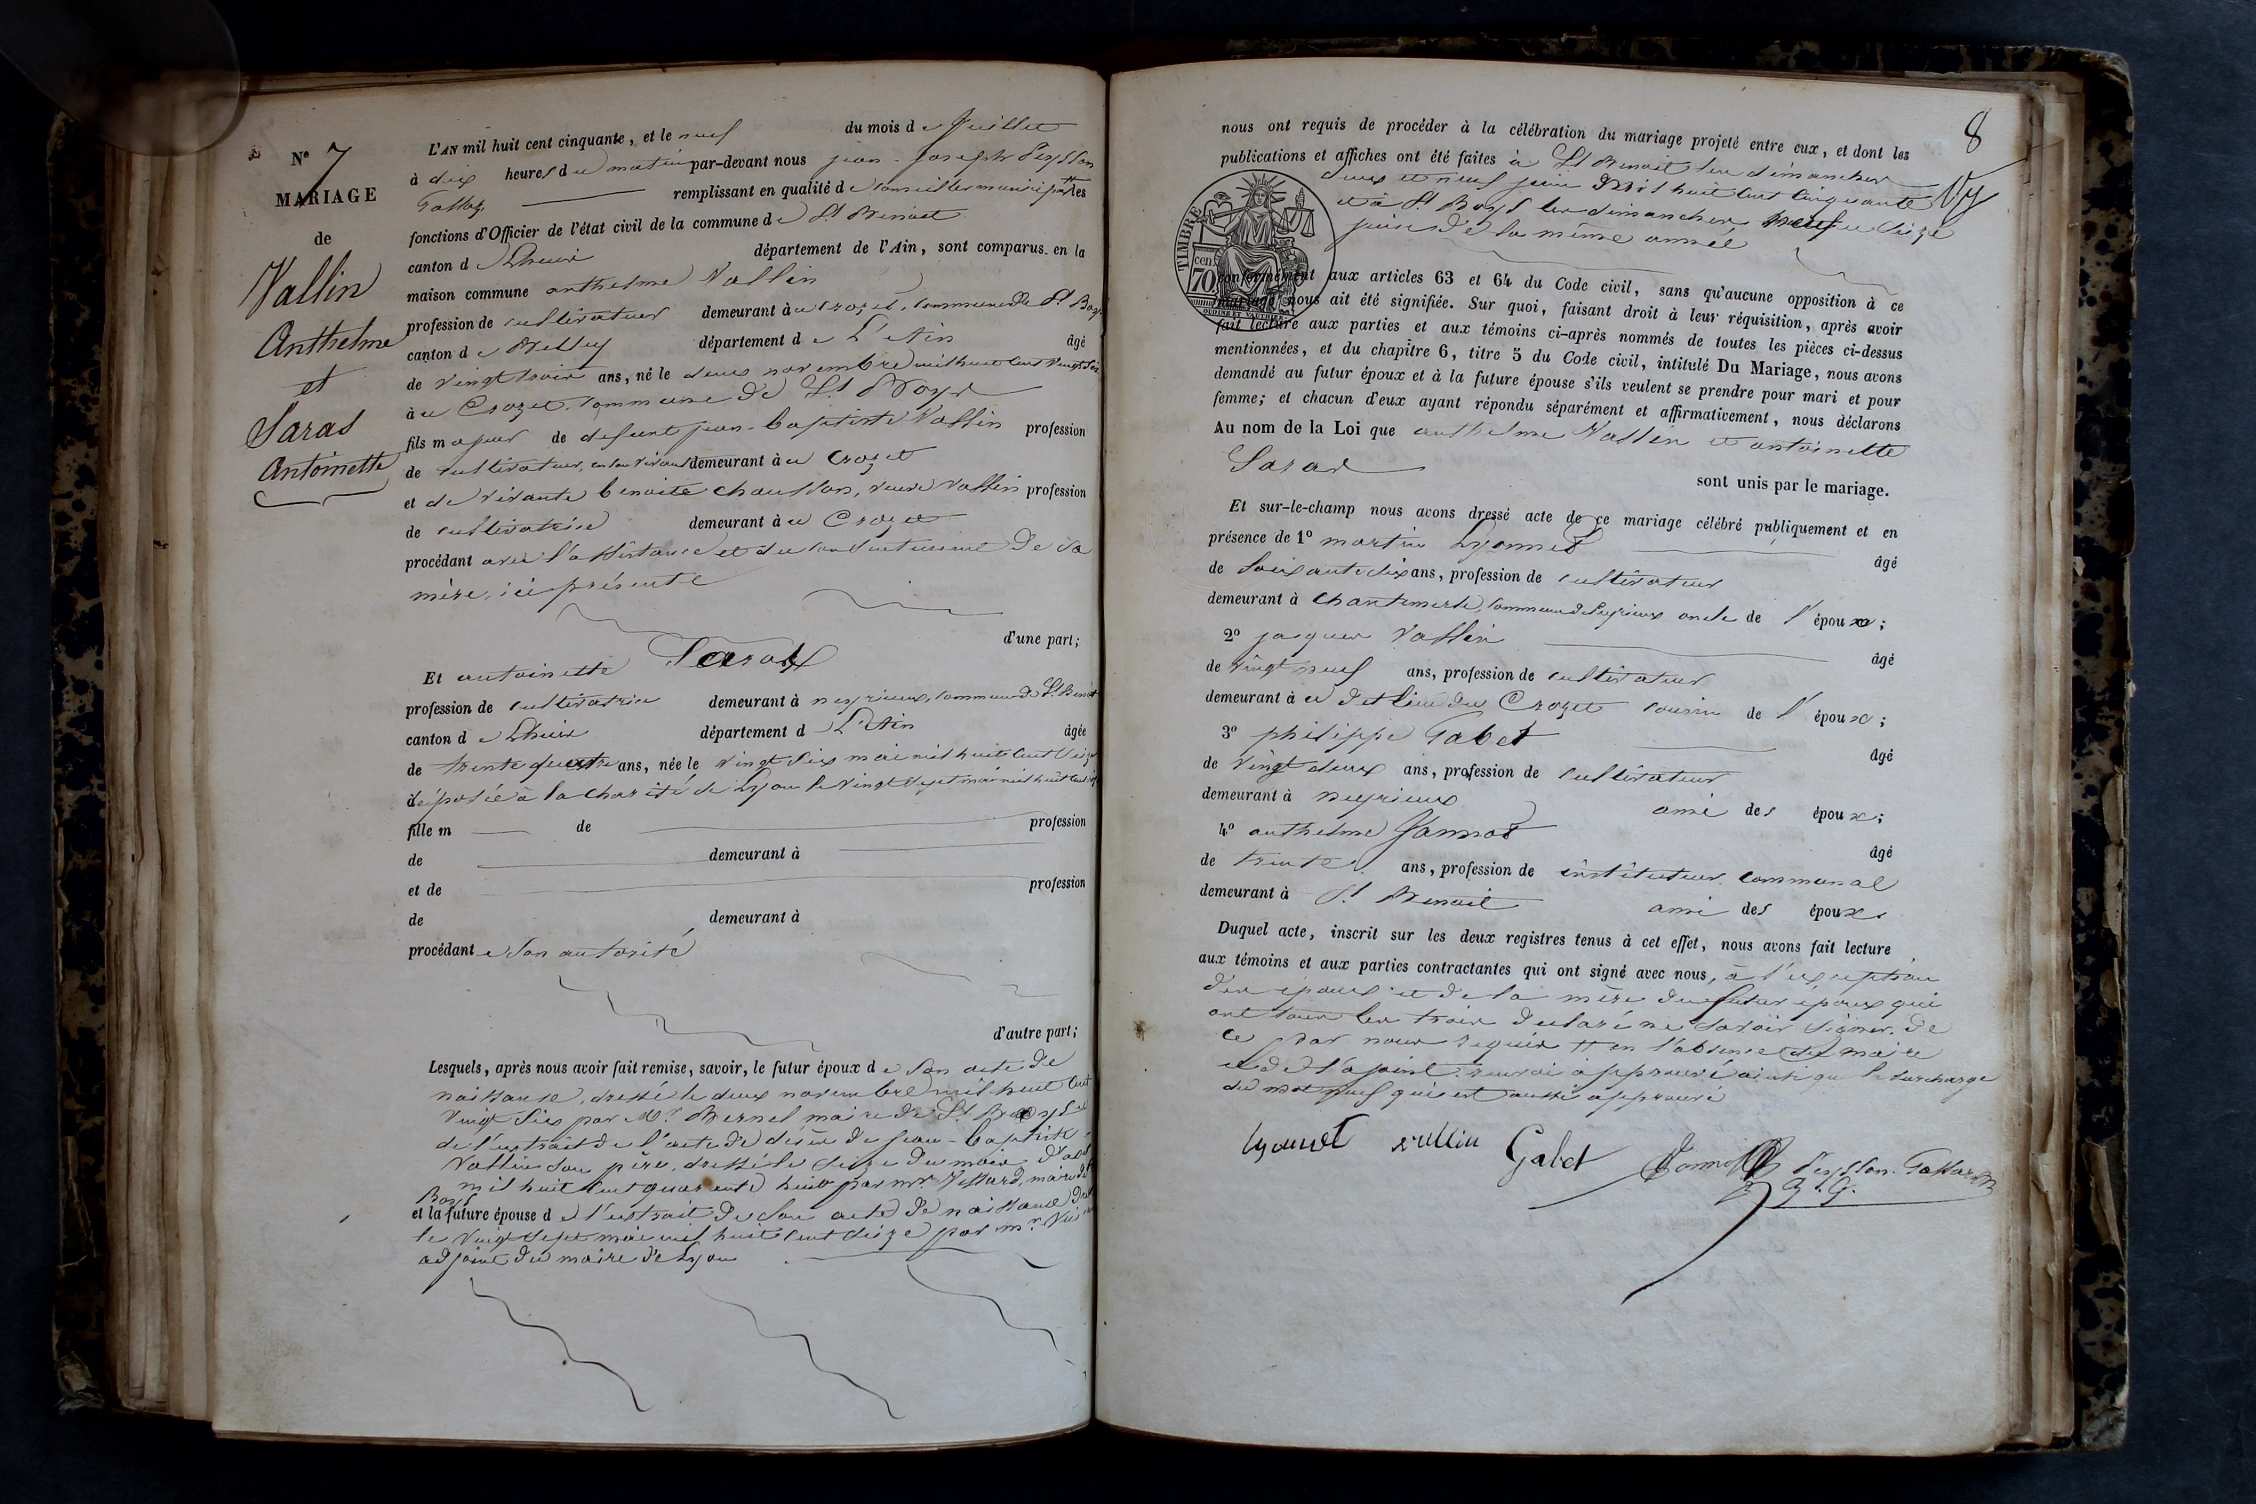 N° 7
MARIAGE
de
Vallin
Anthelme
et
Saras
Antoinette
L'AN mil huit cent cinquante, et le neuf du mois de Juillet
à dix heures du matin par-devant nous jean-joseph Peysson
remplissant en qualité de Conseiller municipal les
fonctions d'Officier de l'état civil de la commune de St Benoit
canton de Lhuis département de l'Ain, sont comparus en la
maison commune anthelme Vallin
profession de cultivateur demeurant au Crozet, commune de St Boys
canton de Belley département de L'Ain âgé
de vingt trois ans, né le deux novembre mil huit cent vingt six
au Crozet commune de St Boys
fils majeur de defunt jean-baptiste Vallin profession
de cultivateur, en son vivant demeurant au Crozet
et de vivante benoite chausson, veuve Vallin profession
de cultivatrice demeurant au Crozet
procédant avec l'assistance et du consentement de sa
mère, ici présente
d'une part;
Et antoinette Saras
profession de cultivatrice demeurant à neyrieux, commune de St Benoit
canton de Lhuis département de L'Ain âgée
de trente quatre ans, née le vingt six mai mil huit cent seize
déposée à la charité de Lyon le vingt sept mai mil huit cent
fille m de profession
de demeurant à
et de profession
de demeurant à
procédant de son autorité
d'autre part;
Lesquels, après nous avoir fait remise, savoir, le futur époux de son acte de
naissance, dressé le deux novembre mil huit cent
vingt six par Mr Bernel maire de St Boys et
de l'extrait de l'acte de décès de jean-baptiste
Vallin son père, dressé le seize du mois d'
mil huit cent quarante huit par mr maire de
Boys
et la future épouse de l'extrait de son acte de naissance
le vingt sept mai mil huit cent seize par mr
adjoint du maire de Lyon
8
nous ont requis de procéder à la célébration du mariage projeté entre eux, et dont les
publications et affiches ont été faites à St Benoit les dimanches
deux et neuf juin mil huit cent cinquante
et à St Boys les dimanches neuf et seize
juin de la même année
TIMBRE
cen. 70
OUDINE ET VAUTHIER
conformément aux articles 63 et 64 du Code civil, sans qu'aucune opposition à ce
mariage nous ait été signifiée. Sur quoi, faisant droit à leur réquisition, après avoir
fait lecture aux parties et aux témoins ci-après nommés de toutes les pièces ci-dessus
mentionnées, et du chapitre 6, titre 5 du Code civil, intitulé Du Mariage, nous avons
demandé au futur époux et à la future épouse s'ils veulent se prendre pour mari et pour
femme; et chacun d'eux ayant répondu séparément et affirmativement, nous déclarons
Au nom de la Loi que anthelme Vallin et antoinette
Saras
sont unis par le mariage.
Et sur-le-champ nous avons dressé acte de ce mariage célébré publiquement et en
présence de 1° martin Lyonnet âgé
de soixante dix ans, profession de cultivateur
demeurant à chantemerle, commune de Peyrieux oncle de l'époux;
2° jacques Vallin âgé
de vingt neuf ans, profession de cultivateur
demeurant au dit lieu du Crozet cousin de l'époux;
3° philippe Gabet âgé
de vingt deux ans, profession de cultivateur
demeurant à neyrieux ami des époux;
4° anthelme Jannot âgé
de trente ans, profession de instituteur communal
demeurant à St Benoit ami des époux.
Duquel acte, inscrit sur les deux registres tenus à cet effet, nous avons fait lecture
aux témoins et aux parties contractantes qui ont signé avec nous, à l'exception
des époux et de la mère du futur époux qui
ont tous les trois déclaré ne savoir signer. de
ce par nous requis en l'absence du maire
et de l'ajoint. renvoi approuvé ainsi que la surcharge
du mot neuf qui est aussi approuvé
Lyonnet vallin Gabet Jannot Peysson